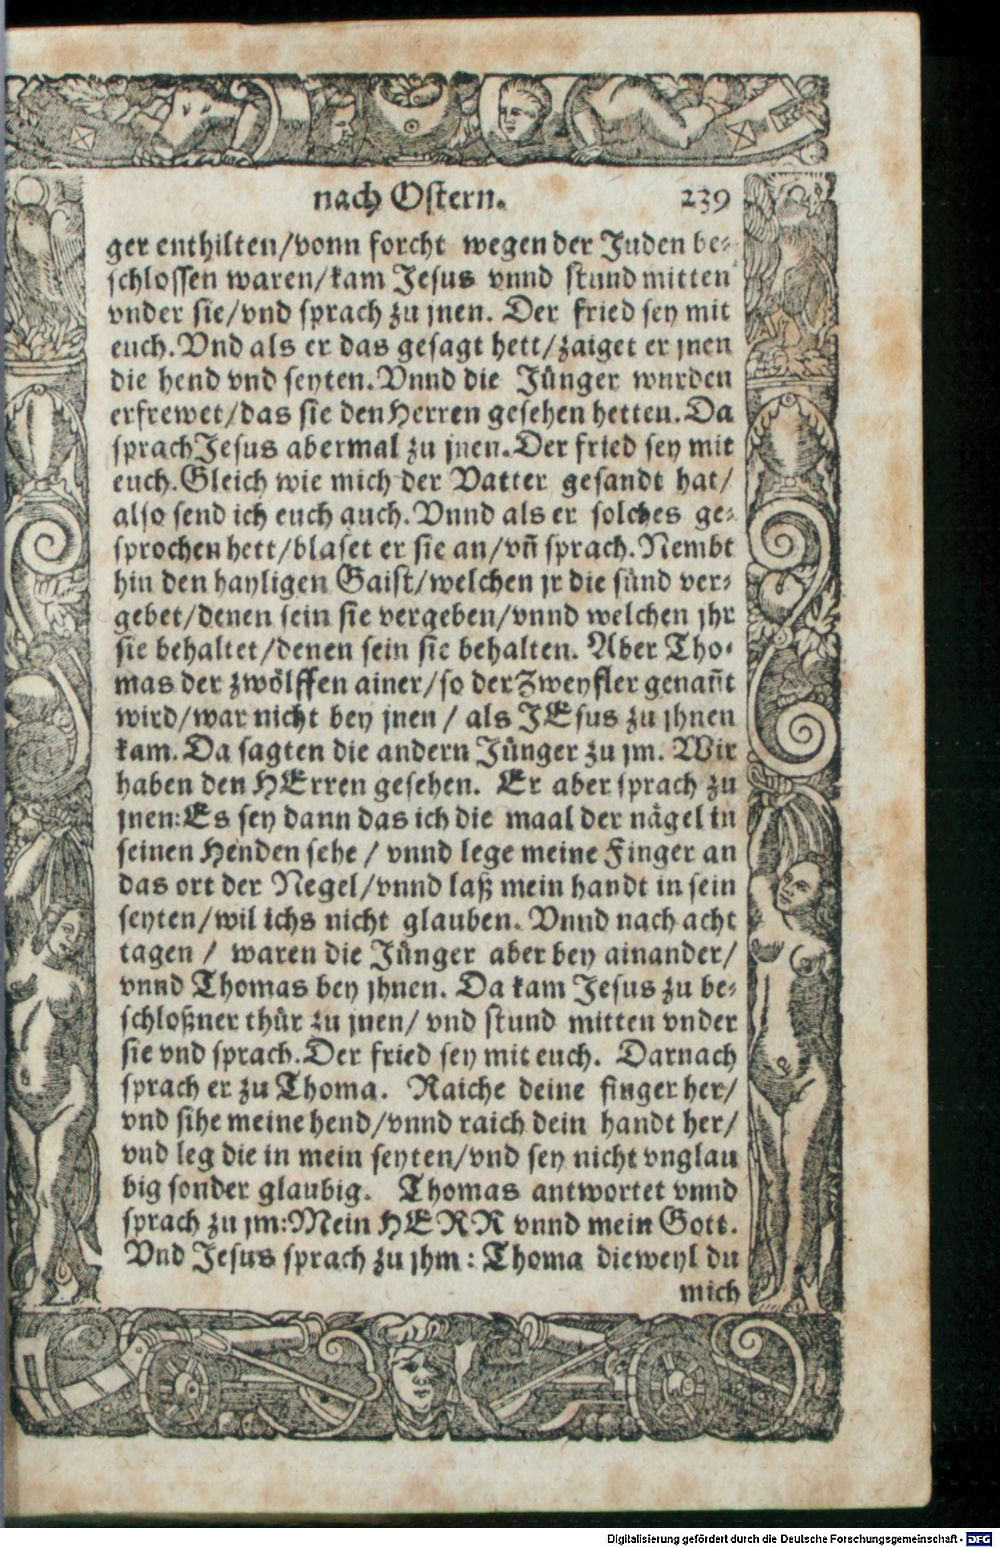 nach Ostern. 239
ger enthilten/vonn forcht wegen der Juden be⸗
schlossen waren/kam Jesus vnnd stund mitten
vnder sie/vnd sprach zu jnen. Der fried sey mit
euch. Vnd als er das gesagt hett/zaiget er jnen
die hend vnd seyten. Vnnd die Jünger wurden
erfrewet/das sie den Herren gesehen hetten. Da
sprach Jesus abermal zu jnen. Der fried sey mit
euch. Gleich wie mich der Vatter gesandt hat/
also send ich euch auch. Vnnd als er solches ge⸗
sprochen hett/blaset er sie an/vñ sprach. Nembt
hin den hayligen Gaist/welchen jr die sünd ver⸗
gebet/denen sein sie vergeben/vnnd welchen jhr
sie behaltet/denen sein sie behalten. Aber Tho⸗
mas der zwölffen ainer/so der Zweyfler genañt
wird/war nicht bey jnen / als JEsus zu jhnen
kam. Da sagten die andern Jünger zu jm. Wir
haben den HErren gesehen. Er aber sprach zu
jnen: Es sey dann das ich die maal der nägel in
seinen Henden sehe / vnnd lege meine Finger an
das ort der Negel/vnnd laß mein handt in sein
seyten/wil ichs nicht glauben. Vnnd nach acht
tagen / waren die Jünger aber bey ainander/
vnnd Thomas bey jhnen. Da kam Jesus zu be⸗
schloßner thür zu jnen/ vnd stund mitten vnder
sie vnd sprach. Der fried sey mit euch. Darnach
sprach er zu Thoma. Raiche deine finger her/
vnd sihe meine hend/vnnd raich dein handt her/
vnd leg die in mein seyten/vnd sey nicht vnglau
big sonder glaubig. Thomas antwortet vnnd
sprach zu jm: Mein HERR vnnd mein Gott.
Vnd Jesus sprach zu jhm : Thoma dieweyl du
mich
Digitalisierung gefördert durch die Deutsche Forschungsgemeinschaft - DFG